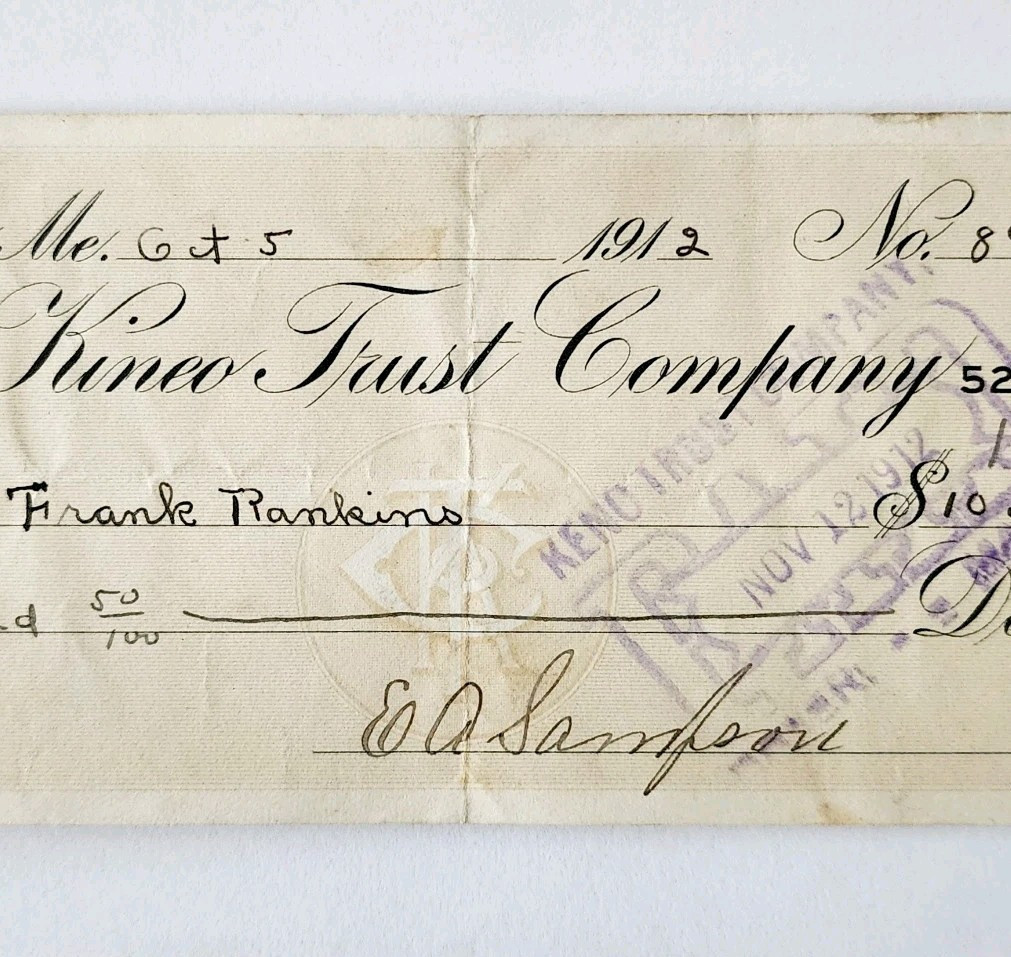 Me. Oct 5 1912 No. 8
Kineo Trust Company 52
Frank Rankins $10.
d 50/100 D
E A Sampson
TRUST COMPANY,
NOV 12 1912
PAID
KTC